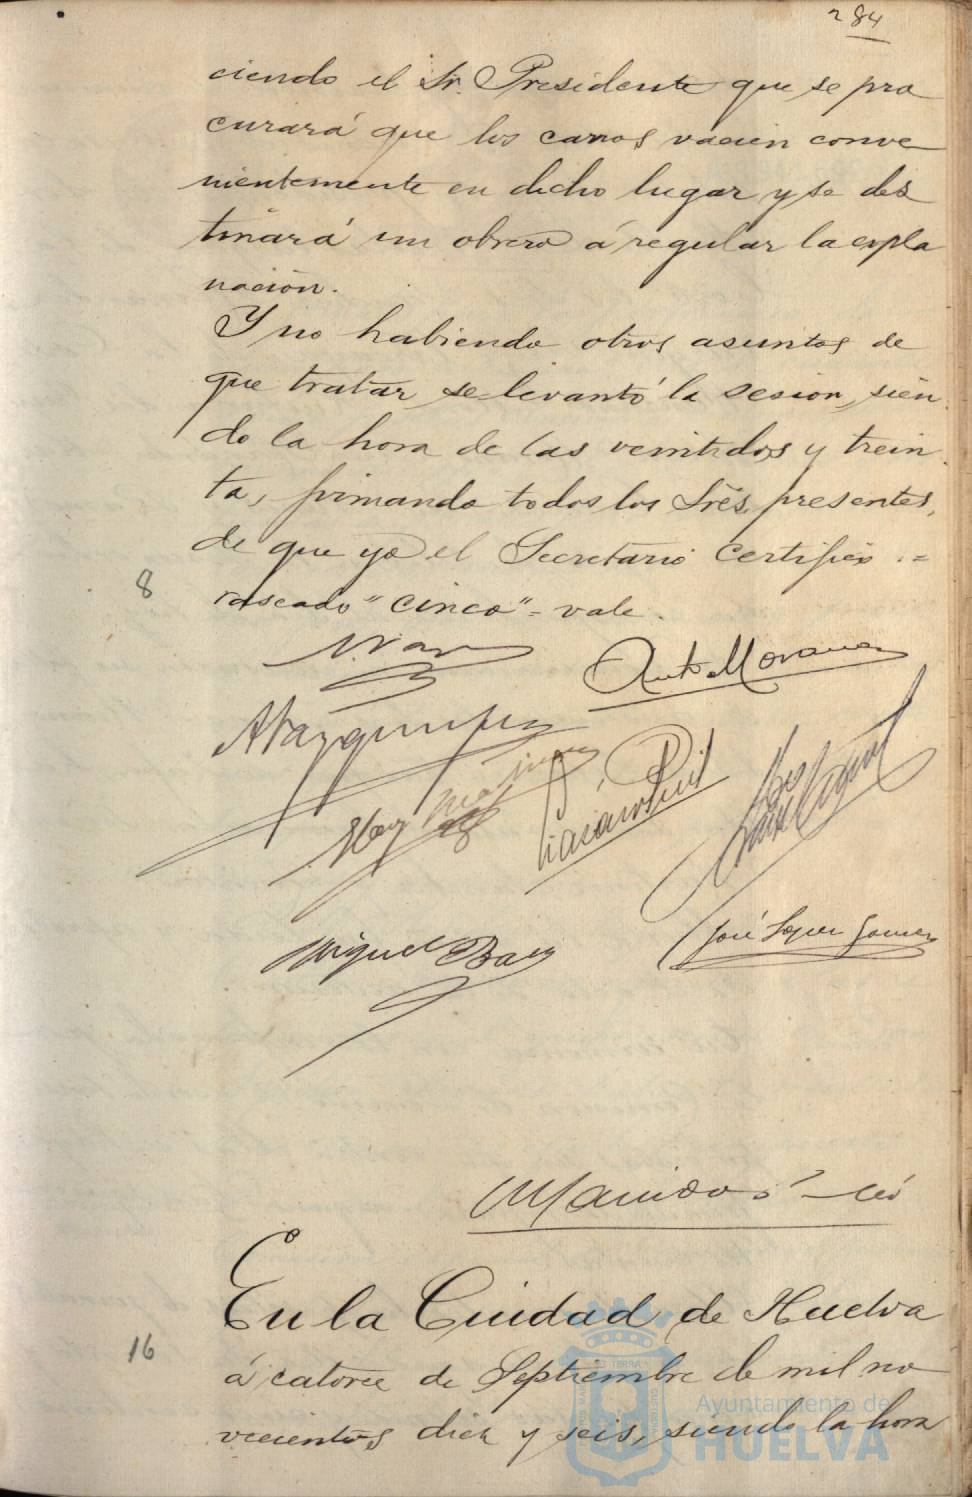 284
ciendo el Sr. Presidente que se pro
curará que los carros vacien conve
nientemente en dicho lugar y se des
tinará un obrero á regular la expla
nación.
Y no habiendo otros asuntos de
que tratar se levantó la sesion, sien
do la hora de las veintidos y trein
ta, firmando todos los Sres presentes,
de que yo el Secretario certifico .=
8
raseado "cinco" = vale.
Anto Morano
Miguel Baez
José Lopez Gomez
En la Ciudad de Huelva
16
á catorce de Septiembre de mil no
vecientos diez y seis, siendo la hora
Ayuntamiento de
HUELVA